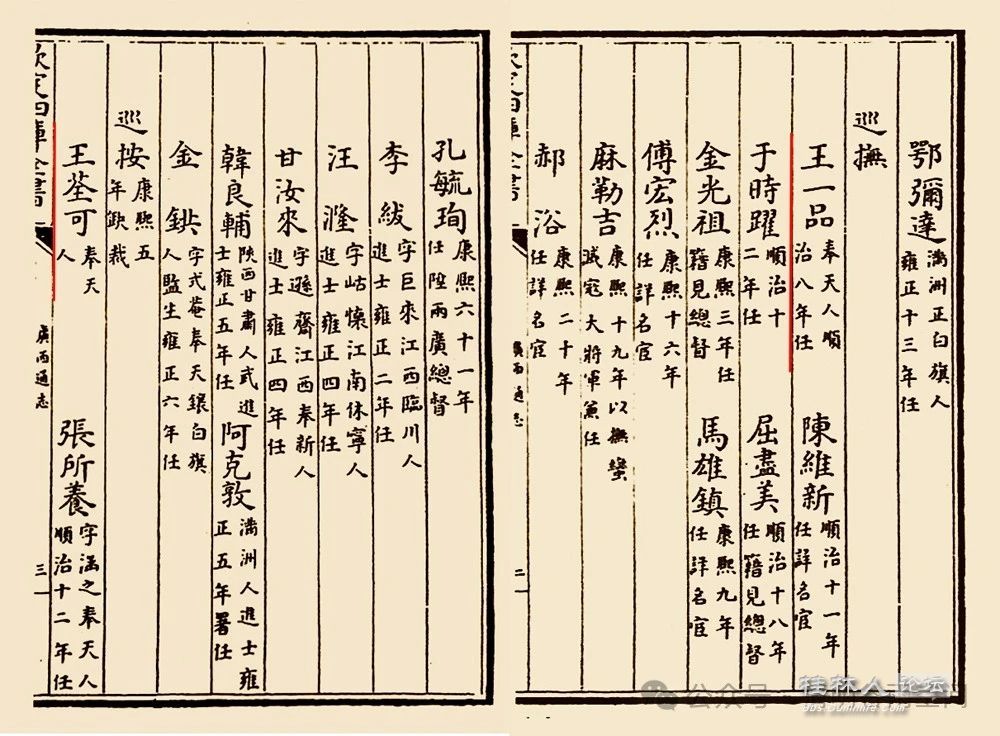 鄂彌達 滿洲正白旗人雍正十三年任
巡撫
王一品 奉天人順治八年任 陳維新 順治十一年任詳名宦
于時躍 順治十二年任 屈盡美 順治十八年任籍見總督
金光祖 康熙三年任籍見總督 馬雄鎮 康熙九年任詳名宦
傅宏烈 康熙十六年任詳名宦
麻勒吉 康熙十九年以撫蠻滅寇大將軍兼任
郝浴 康熙二十年任詳名宦
欽定四庫全書 廣西通志 二
孔毓珣 康熙六十一年任陞兩廣總督
李紱 字巨來江西臨川人進士雍正二年任
汪漋 字岵懷江南休寧人進士雍正四年任
甘汝來 字遜齋江西奉新人進士雍正四年任
韓良輔 陝西甘肅人武進士雍正五年任 阿克敦 滿洲人進士雍正五年署任
金鉷 字式菴奉天鑲白旗人監生雍正六年任
巡按 康熙五年缺裁
王荃可 奉天人 張所養 字涵之奉天人順治十二年任
欽定四庫全書 廣西通志 三
公众号
桂林人论坛